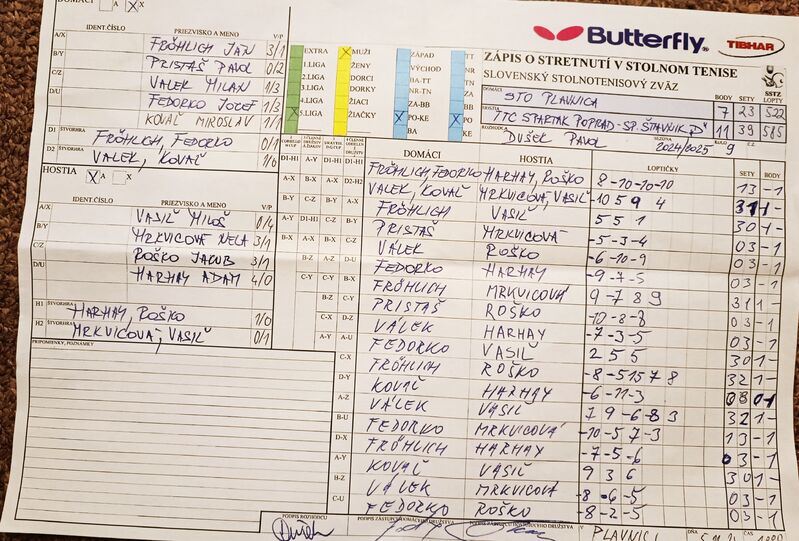 DOMÁCI A X
IDENT.ČÍSLO PRIEZVISKO A MENO V/P
A/X FRÖHLICH JÁN 3/1
B/Y PRISTAŠ PAVOL 0/2
C/Z VALEK MILAN 1/3
D/U FEDORKO JOZEF 1/3
KOVAĽ MIROSLAV 1/1
D1 ŠTVORHRA FRÖHLICH, FEDORKO 0/1
D2 VALEK, KOVAĽ 1/0
HOSTIA X A X
IDENT.ČÍSLO PRIEZVISKO A MENO V/P
A/X VASIĽ MILOŠ 0/4
B/Y MRKVICOVÁ NELA 3/1
C/Z ROŠKO JAKUB 3/1
D/U HARHAY ADAM 4/0
H1 ŠTVORHRA HARHAY, ROŠKO 1/0
H2 ŠTVORHRA MRKVICOVÁ, VASIĽ 0/1
PRIPOMIENKY, POZNÁMKY
EXTRA X MUŽI ZÁPAD TT
1.LIGA ŽENY VÝCHOD NR
2.LIGA DORCI BA-TT TN
3.LIGA DORKY NR-TN ZA
4.LIGA ŽIACI ZA-BB BB
X 5.LIGA ŽIAČKY X PO-KE X PO
BA KE
Butterfly
TIBHAR
ZÁPIS O STRETNUTÍ V STOLNOM TENISE
SLOVENSKÝ STOLNOTENISOVÝ ZVÄZ
SSTZ
DOMÁCI STO PLAVNICA BODY 7 SETY 23 LOPTY 522
HOSTIA TTC SPARTAK POPRAD-SP. ŠTAVNIK "D" 11 39 585
ROZHODCA DUŠEK PAVOL SEZÓNA 2024/2025 KOLO 9
DOMÁCI HOSTIA LOPTIČKY SETY BODY
FRÖHLICH, FEDORKO HARHAY, ROŠKO 8 -10 -10 -10 1 3 - 1
VALEK, KOVAĽ MRKVICOVÁ, VASIĽ -10 5 9 4 3 1 1 -
FRÖHLICH VASIĽ 5 5 1 3 0 1 -
PRISTAŠ MRKVICOVÁ -5 -3 -4 0 3 - 1
VALEK ROŠKO -6 -10 -9 0 3 - 1
FEDORKO HARHAY -9 -7 -5 0 3 - 1
FRÖHLICH MRKVICOVÁ 9 -7 8 9 3 1 1 -
PRISTAŠ ROŠKO -10 -8 -8 0 3 - 1
VALEK HARHAY -7 -3 -5 0 3 - 1
FEDORKO VASIĽ 2 5 5 3 0 1 -
FRÖHLICH ROŠKO -8 -5 15 7 8 3 2 1 -
KOVAĽ HARHAY -6 -11 -3 0 3 0 - 1
VÁLEK VASIĽ 7 9 -6 -8 3 3 2 1 -
FEDORKO MRKVICOVÁ -10 -5 7 -3 1 3 - 1
FRÖHLICH HARHAY -7 -5 -6 0 3 - 1
KOVAĽ VASIĽ 9 3 6 3 0 1 -
VÁLEK MRKVICOVÁ -8 -6 -5 0 3 - 1
FEDORKO ROŠKO -8 -2 -5 0 3 - 1
PODPIS ROZHODCU PODPIS ZÁSTUPCU DOMÁCEHO DRUŽSTVA PODPIS ZÁSTUPCU HOSŤUJÚCEHO DRUŽSTVA V PLAVNICI DŇA ČAS